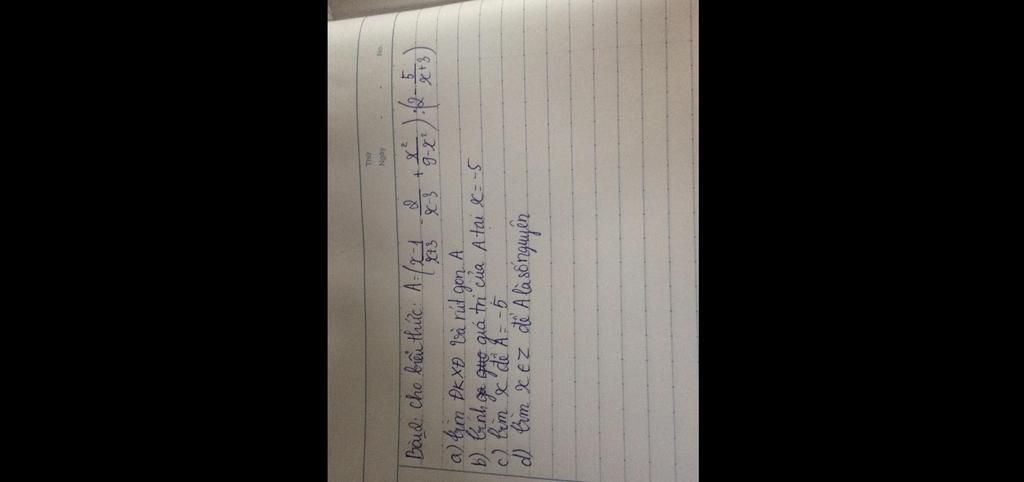 Thứ
Ngày No.
Bài 2: Cho biểu thức: A = (x-1/x+3 - 2/x-3 + x²/9-x²) : (2 - 5/x+3)
a) tìm ĐKXĐ và rút gọn A
b) tính giá trị của A tại x = -5
c) tìm x để A = -5
d) tìm x ∈ Z để A là số nguyên